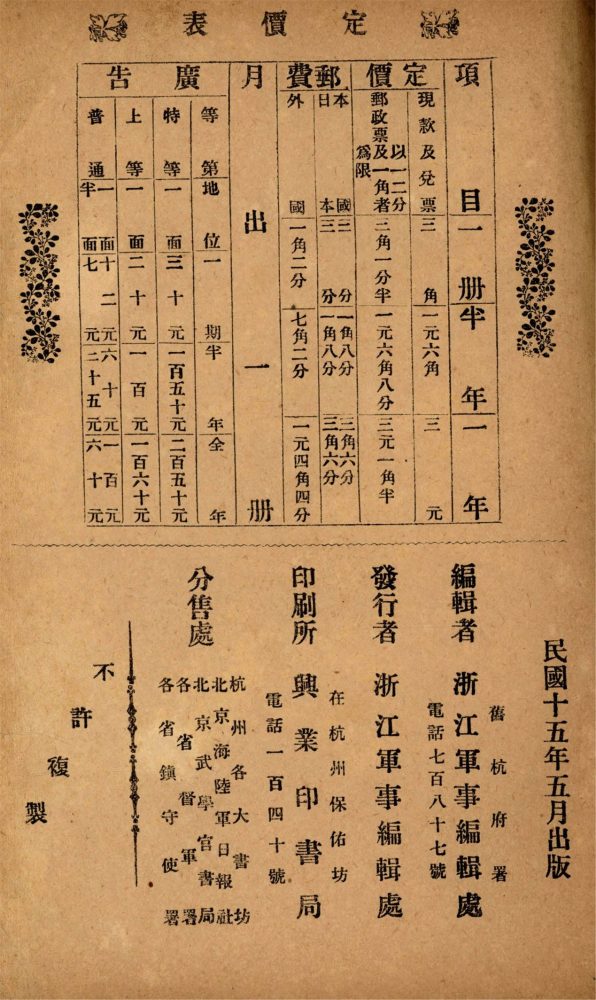 定價表
項目 一册 半年 一年
定價 現款及兌票 三角 一元六角 三元
郵政票及一角者以一二分爲限 三角一分半 一元六角八分 三元一角半
郵費 本國 三分 一角八分 三角六分
日本 三分 一角八分 三角六分
外國 一角二分 七角二分 一元四角四分
月出一册
廣告 等第 地位 一期 半年 全年
特等 一面 三十元 一百五十元 二百五十元
上等 一面 二十元 一百元 一百六十元
普通 一面 十二元 六十元 一百元
半面 七元 二十五元 六十元
民國十五年五月出版
舊杭府署
編輯者 浙江軍事編輯處
電話七百八十七號
發行者 浙江軍事編輯處
在杭州保佑坊
印刷所 興業印書局
電話一百四十號
分售處
杭州各大書坊
北京海陸軍日報社
北京武學官書局
各省督軍署
各省鎮守使署
不許複製